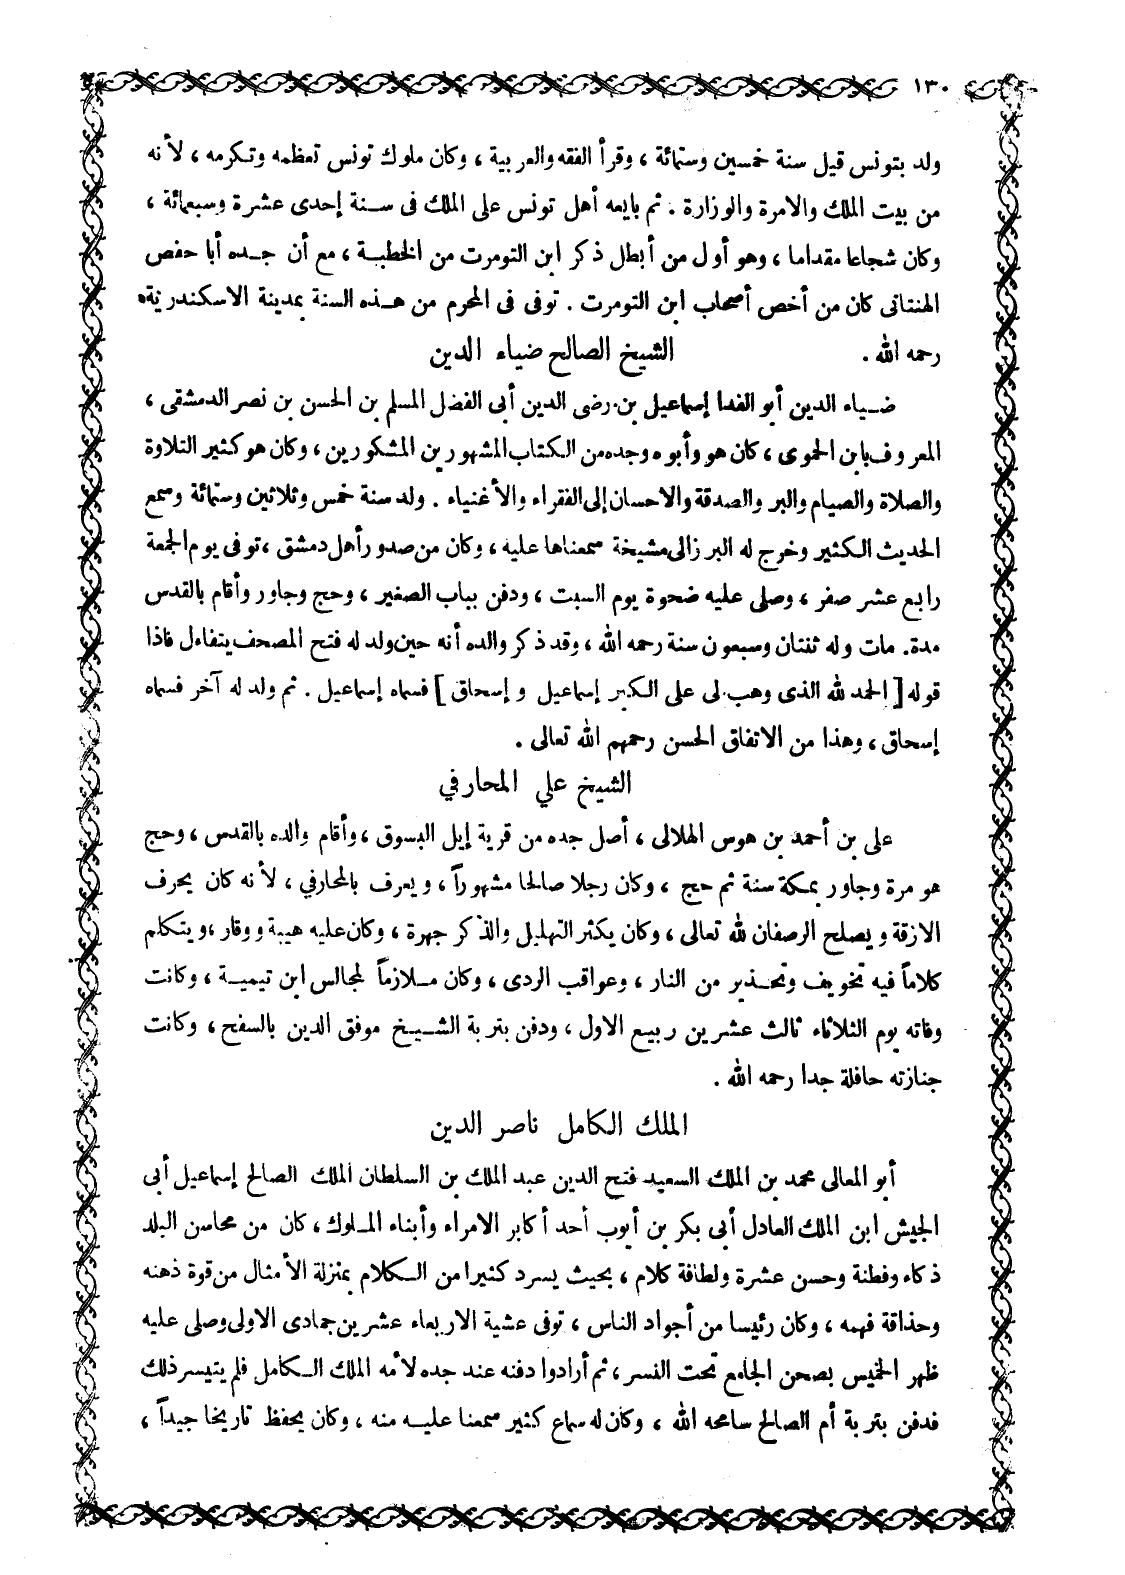 ١٣٠
ولد بتونس قيل سنة خمسين وستمائة ، وقرأ الفقه والعربية ، وكان ملوك تونس تعظمه وتكرمه ، لأنه
من بيت الملك والامرة والوزارة . ثم بايعه أهل تونس على الملك فى سنة إحدى عشرة وسبعمائة ،
وكان شجاعا مقداما ، وهو أول من أبطل ذكر ابن التومرت من الخطبة ، مع أن جده أبا حفص
الهنتانى كان من أخص أصحاب ابن التومرت . توفى فى المحرم من هذه السنة بمدينة الاسكندرية،
رحمه الله .
الشيخ الصالح ضياء الدين
ضياء الدين أبو الفدا إسماعيل بن رضى الدين أبى الفضل المسلم بن الحسن بن نصر الدمشقى ،
المعروف بابن الحموى ، كان هو وأبوه وجده من الكتاب المشهورين المشكورين ، وكان هو كثير التلاوة
والصلاة والصيام والبر والصدقة والاحسان إلى الفقراء والأغنياء . ولد سنة خمس وثلاثين وستمائة وسمع
الحديث الكثير وخرج له البرزالى مشيخة سمعناها عليه ، وكان من صدور أهل دمشق ، توفى يوم الجمعة
رابع عشر صفر ، وصلى عليه ضحوة يوم السبت ، ودفن بباب الصغير ، وحج وجاور وأقام بالقدس
مدة. مات وله ثنتان وسبعون سنة رحمه الله ، وقد ذكر والده أنه حين ولد له فتح المصحف يتفاءل فاذا
قوله [ الحمد لله الذى وهب لى على الكبر إسماعيل و إسحاق ] فسماه إسماعيل . ثم ولد له آخر فسماه
إسحاق ، وهذا من الاتفاق الحسن رحمهم الله تعالى .
الشيخ علي المحارفي
على بن أحمد بن هوس الهلالى ، أصل جده من قرية إيل البسوق ، وأقام والده بالقدس ، وحج
هو مرة وجاور بمكة سنة ثم حج ، وكان رجلا صالحا مشهوراً ، ويعرف بالمحارفي ، لأنه كان يحرف
الازقة ويصلح الرصفان لله تعالى ، وكان يكثر التهليل والذكر جهرة ، وكان عليه هيبة ووقار ، ويتكلم
كلاماً فيه تخويف وتحذير من النار ، وعواقب الردى ، وكان ملازماً لمجالس ابن تيمية ، وكانت
وفاته يوم الثلاثاء ثالث عشرين ربيع الاول ، ودفن بتربة الشيخ موفق الدين بالسفح ، وكانت
جنازته حافلة جدا رحمه الله .
الملك الكامل ناصر الدين
أبو المعالى محمد بن الملك السعيد فتح الدين عبد الملك بن السلطان الملك الصالح إسماعيل أبى
الجيش ابن الملك العادل أبى بكر بن أيوب أحد أكابر الامراء وأبناء الملوك ، كان من محاسن البلد
ذكاء وفطنة وحسن عشرة ولطافة كلام ، بحيث يسرد كثيرا من الكلام بمنزلة الأمثال من قوة ذهنه
وحذاقة فهمه ، وكان رئيسا من أجواد الناس ، توفى عشية الاربعاء عشرين جمادى الاولى وصلى عليه
ظهر الخميس بصحن الجامع تحت النسر ، ثم أرادوا دفنه عند جده لأمه الملك الكامل فلم يتيسر ذلك
فدفن بتربة أم الصالح سامحه الله ، وكان له سماع كثير سمعنا عليه منه ، وكان يحفظ تاريخا جيداً ،